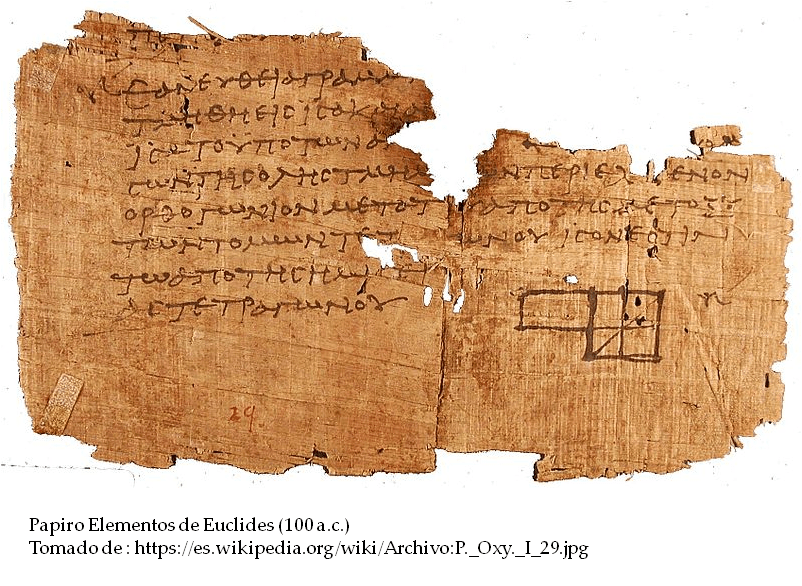 ΕΑΝΕΥΘΕΙΑΓΡΑΜ
ΤΜΗΘΗΕΙϹΙϹΑΚΑΙΑ
ΙϹΑΤΟΥΠΟΤΩΝΑ
ϹΩΝΤΗϹΟΛΗϹΤΜΗΜ ΩΝΠΕΡΙΕΧ ΕΝΟΝ
ΟΡΘΟΓΩΝΙΟΝΜΕΤΟΤ ΑΠΟΤΗϹΜΕΤΟΞΥ
ΤΩΝΤΟΜΩΝΤΕΤ ΩΝΟΥΙϹΟΝΕϹΤΙΝ
ΤΩΑΠΟΤΗϹΗΜΙϹ
ΑϹΤΕΤΡΑΓΩΝΟΥ
29.
Papiro Elementos de Euclides (100 a.c.)
Tomado de : https://es.wikipedia.org/wiki/Archivo:P._Oxy._I_29.jpg